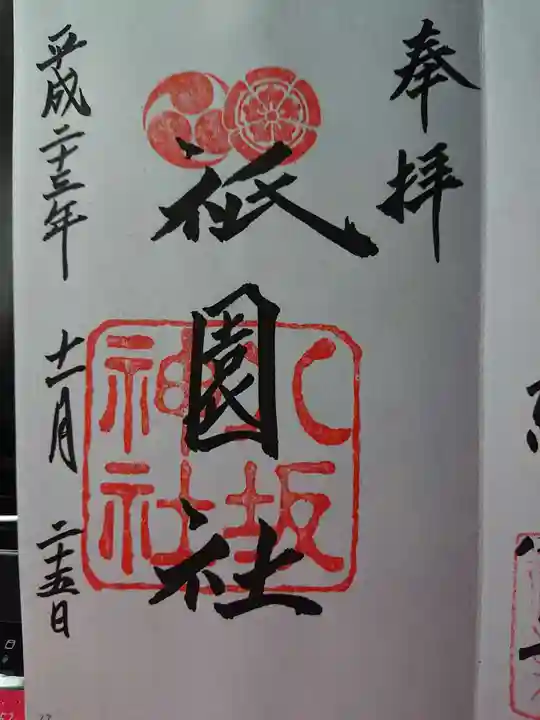 奉拝
祇園社
八坂
神社
平成二十三年 十一月 二十五日